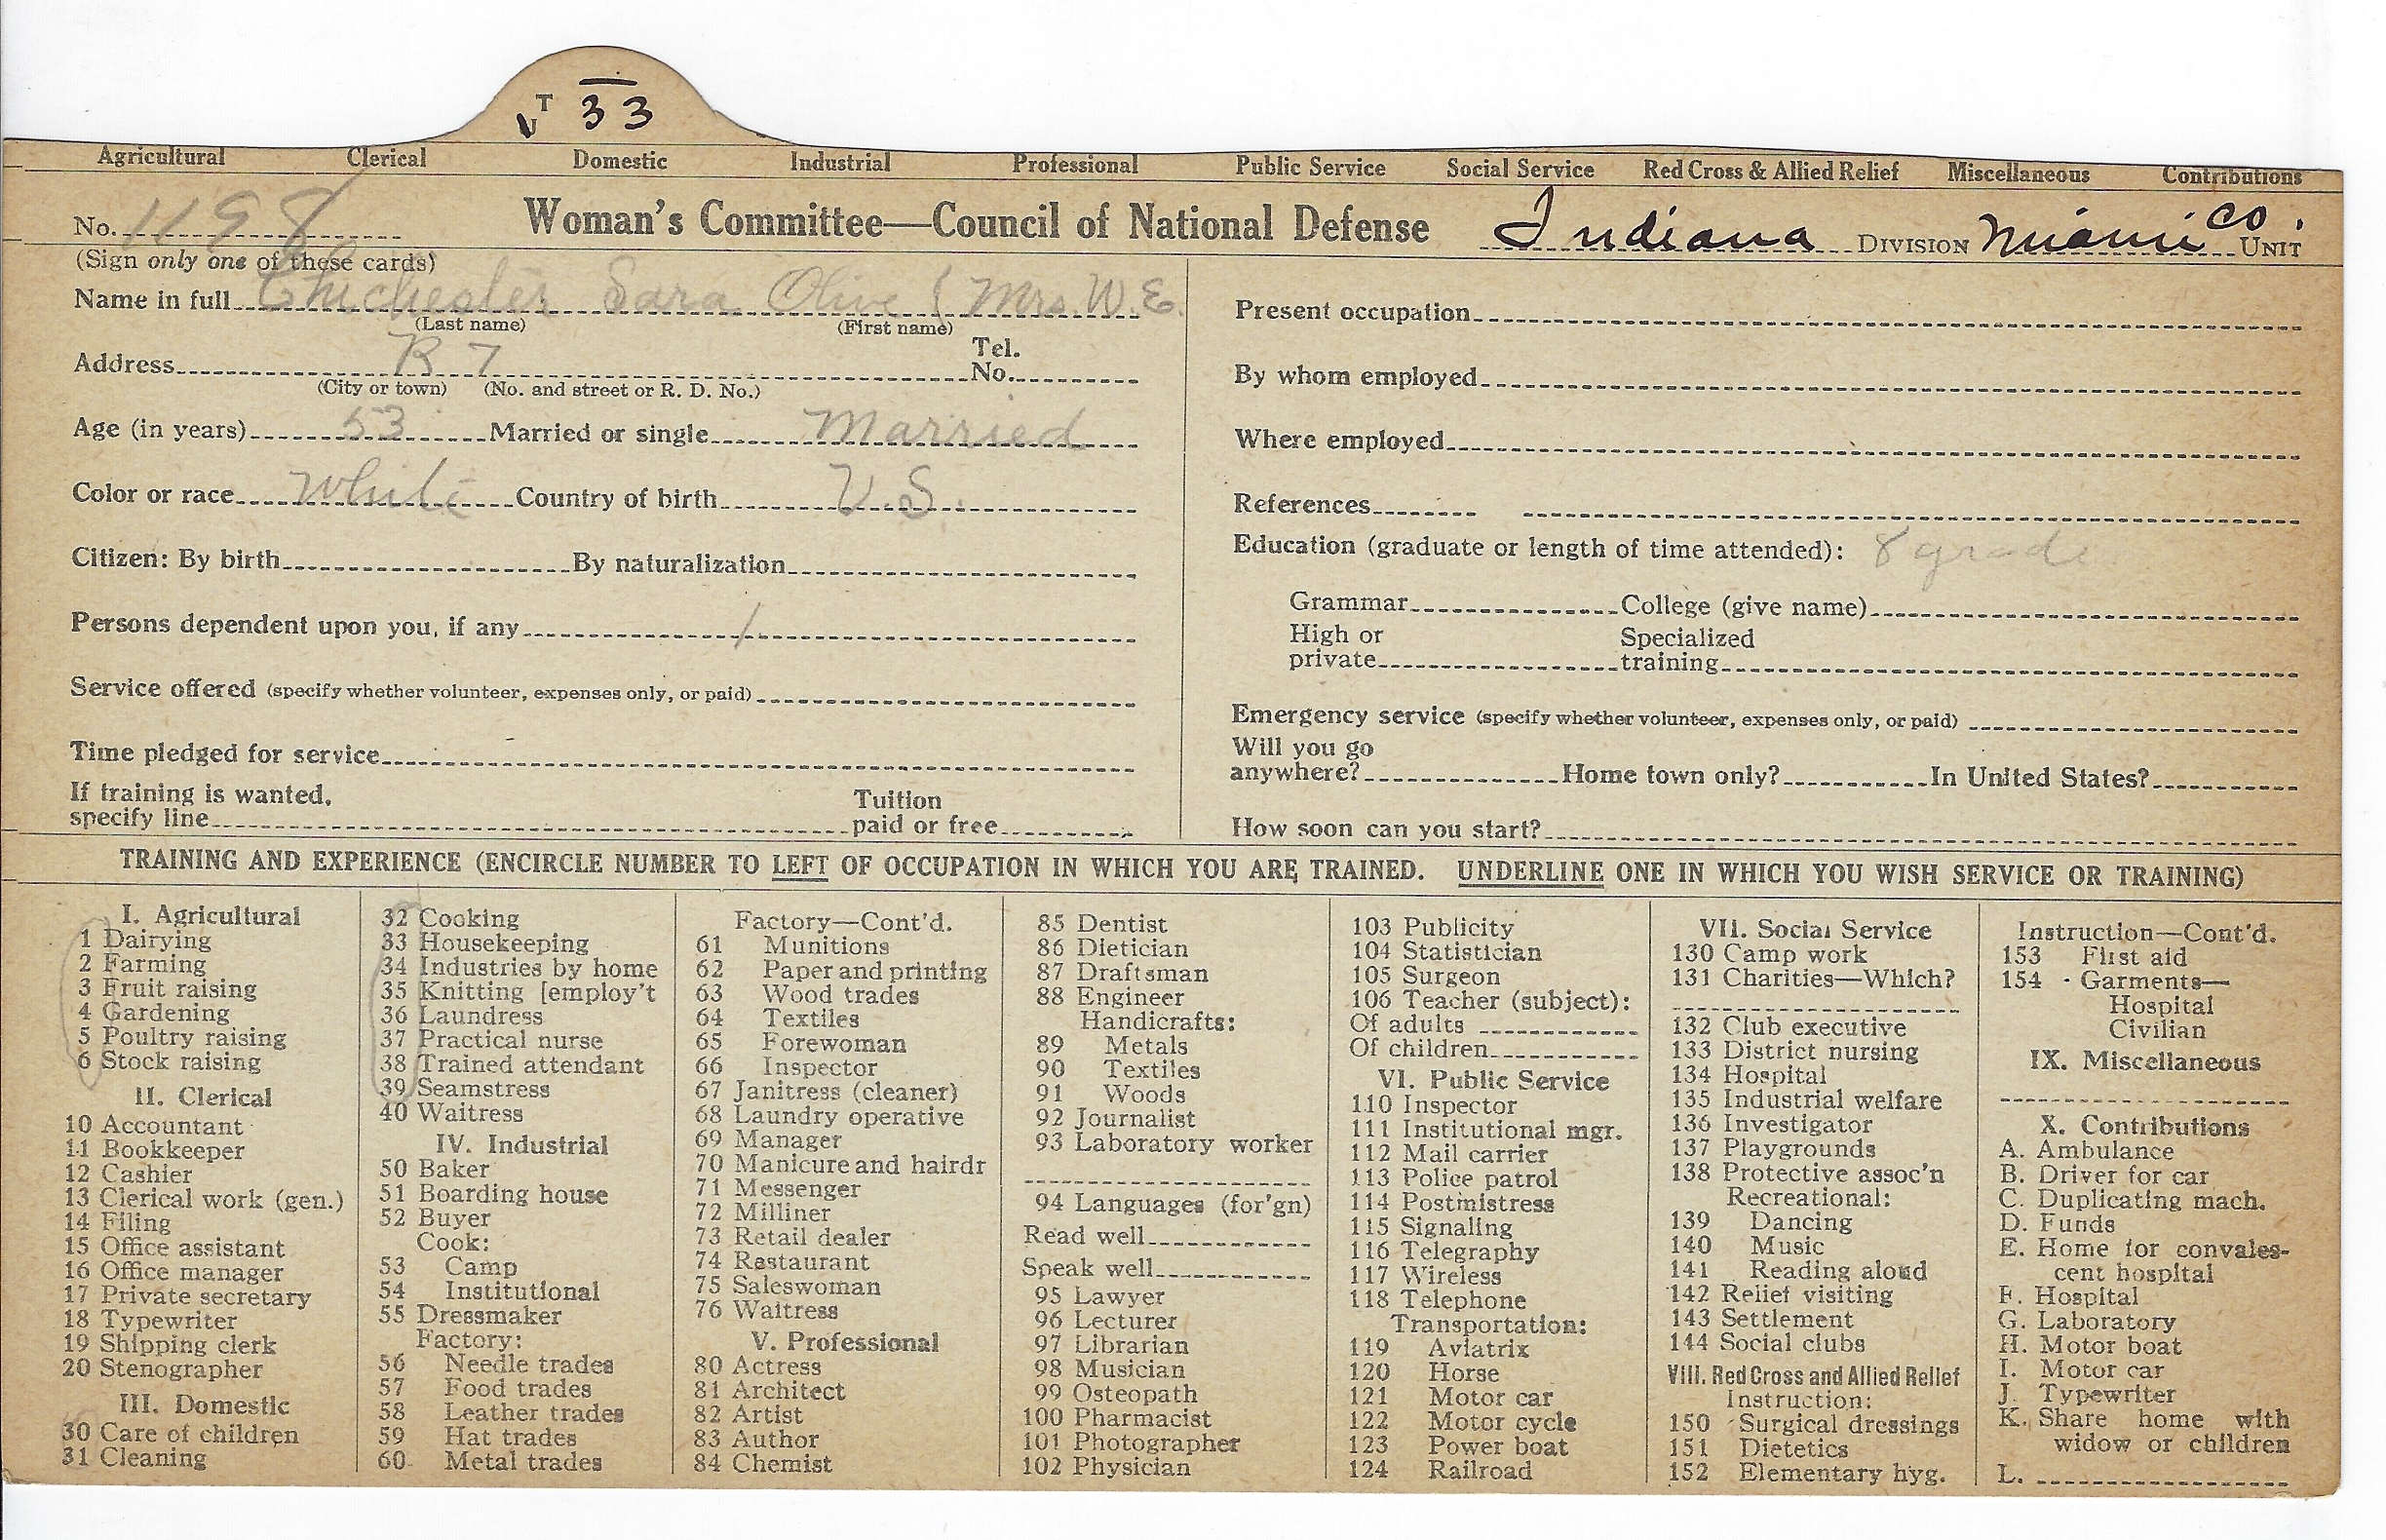 T
U 33
Agricultural Clerical Domestic Industrial Professional Public Service Social Service Red Cross & Allied Relief Miscellaneous Contributions
No. 1198 Woman's Committee—Council of National Defense Indiana DIVISION Miami Co. UNIT
(Sign only one of these cards)
Name in full Chichester Sara Olive (Mrs. W. E.
(Last name) (First name)
Address R 7 Tel. No.
(City or town) (No. and street or R. D. No.)
Age (in years) 53 Married or single Married
Color or race White Country of birth U.S.
Citizen: By birth By naturalization
Persons dependent upon you, if any 1
Service offered (specify whether volunteer, expenses only, or paid)
Time pledged for service
If training is wanted, specify line Tuition paid or free
Present occupation
By whom employed
Where employed
References
Education (graduate or length of time attended): 8 grade
Grammar College (give name)
High or private Specialized training
Emergency service (specify whether volunteer, expenses only, or paid)
Will you go anywhere? Home town only? In United States?
How soon can you start?
TRAINING AND EXPERIENCE (ENCIRCLE NUMBER TO LEFT OF OCCUPATION IN WHICH YOU ARE TRAINED. UNDERLINE ONE IN WHICH YOU WISH SERVICE OR TRAINING)
I. Agricultural
1 Dairying
2 Farming
3 Fruit raising
4 Gardening
5 Poultry raising
6 Stock raising
II. Clerical
10 Accountant
11 Bookkeeper
12 Cashier
13 Clerical work (gen.)
14 Filing
15 Office assistant
16 Office manager
17 Private secretary
18 Typewriter
19 Shipping clerk
20 Stenographer
III. Domestic
30 Care of children
31 Cleaning
32 Cooking
33 Housekeeping
34 Industries by home
35 Knitting [employ't
36 Laundress
37 Practical nurse
38 Trained attendant
39 Seamstress
40 Waitress
IV. Industrial
50 Baker
51 Boarding house
52 Buyer
Cook:
53 Camp
54 Institutional
55 Dressmaker
Factory:
56 Needle trades
57 Food trades
58 Leather trades
59 Hat trades
60 Metal trades
Factory—Cont'd.
61 Munitions
62 Paper and printing
63 Wood trades
64 Textiles
65 Forewoman
66 Inspector
67 Janitress (cleaner)
68 Laundry operative
69 Manager
70 Manicure and hairdr
71 Messenger
72 Milliner
73 Retail dealer
74 Restaurant
75 Saleswoman
76 Waitress
V. Professional
80 Actress
81 Architect
82 Artist
83 Author
84 Chemist
85 Dentist
86 Dietician
87 Draftsman
88 Engineer
Handicrafts:
89 Metals
90 Textiles
91 Woods
92 Journalist
93 Laboratory worker
94 Languages (for'gn)
Read well
Speak well
95 Lawyer
96 Lecturer
97 Librarian
98 Musician
99 Osteopath
100 Pharmacist
101 Photographer
102 Physician
103 Publicity
104 Statistician
105 Surgeon
106 Teacher (subject):
Of adults
Of children
VI. Public Service
110 Inspector
111 Institutional mgr.
112 Mail carrier
113 Police patrol
114 Postmistress
115 Signaling
116 Telegraphy
117 Wireless
118 Telephone
Transportation:
119 Aviatrix
120 Horse
121 Motor car
122 Motor cycle
123 Power boat
124 Railroad
VII. Social Service
130 Camp work
131 Charities—Which?
132 Club executive
133 District nursing
134 Hospital
135 Industrial welfare
136 Investigator
137 Playgrounds
138 Protective assoc'n
Recreational:
139 Dancing
140 Music
141 Reading aloud
142 Relief visiting
143 Settlement
144 Social clubs
VIII. Red Cross and Allied Relief
Instruction:
150 Surgical dressings
151 Dietetics
152 Elementary hyg.
Instruction—Cont'd.
153 First aid
154 Garments—
Hospital
Civilian
IX. Miscellaneous
X. Contributions
A. Ambulance
B. Driver for car
C. Duplicating mach.
D. Funds
E. Home for convales-
cent hospital
F. Hospital
G. Laboratory
H. Motor boat
I. Motor car
J. Typewriter
K. Share home with
widow or children
L.